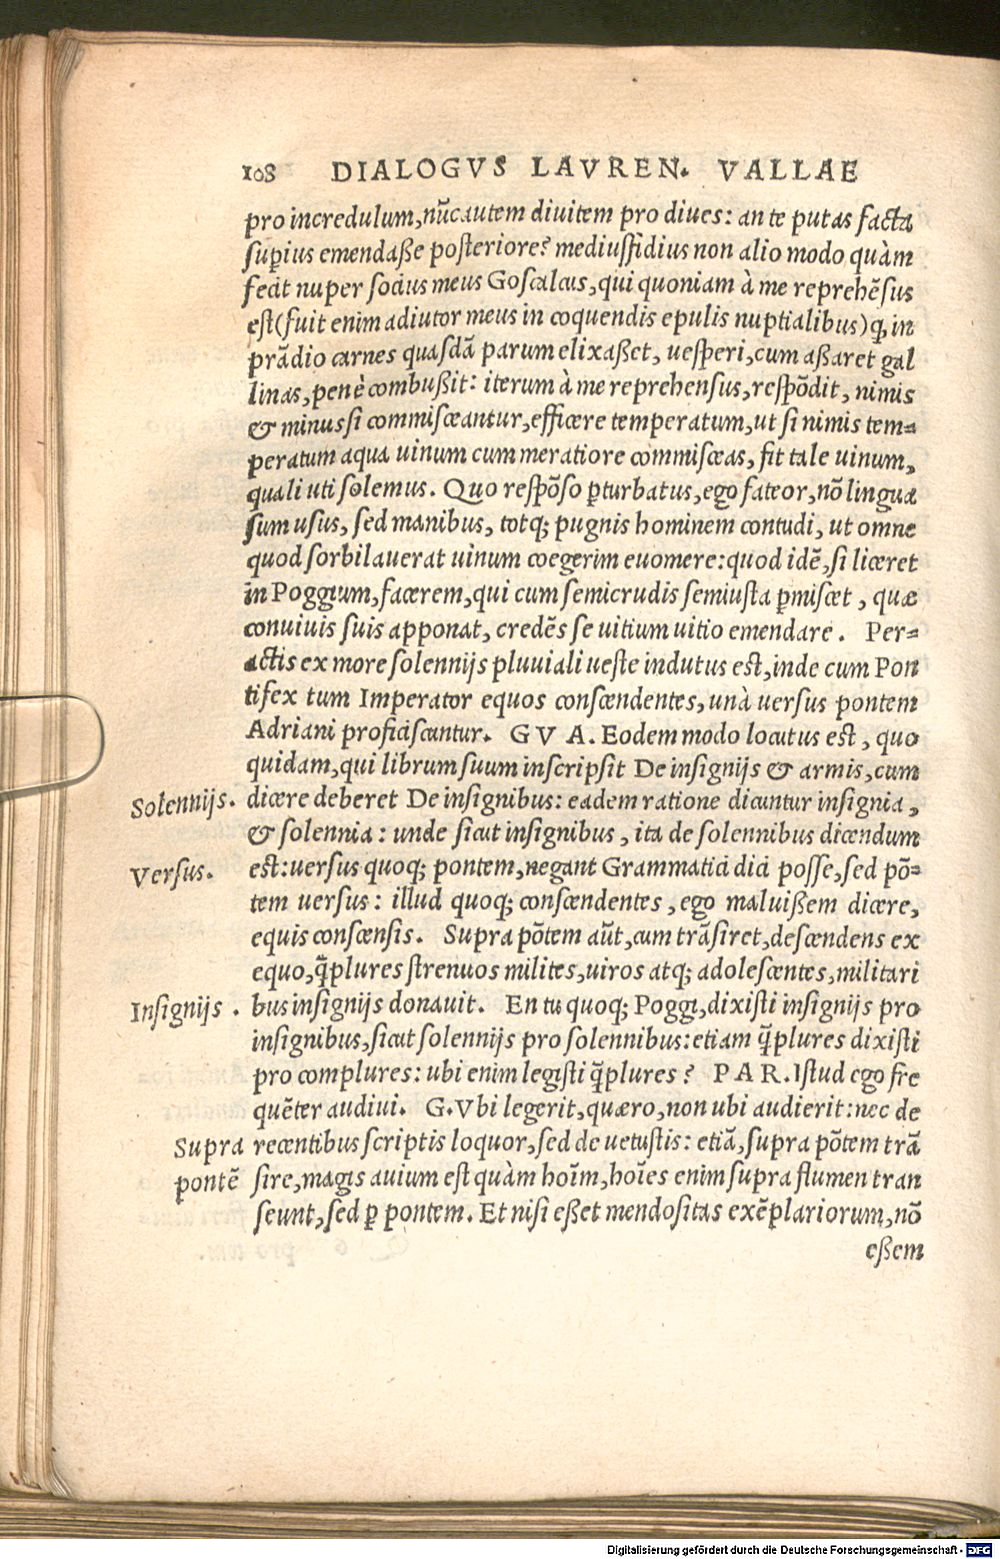 108 DIALOGVS LAVREN. VALLAE
pro incredulum, nũc autem diuitem pro diues: an te putas facta
sup̱ius emendaße posteriore? mediusfidius non alio modo quàm
fecit nuper socius meus Goscalcus, qui quoniam à me reprehẽsus
est (fuit enim adiutor meus in coquendis epulis nuptialibus) q, in
prãdio carnes quasdã parum elixaßet, uesperi, cum aßaret gal
linas, penè combußit: iterum à me reprehensus, respõdit, nimis
& minus si commisceantur, efficere temperatum, ut si nimis tem=
peratum aqua uinum cum meratiore commisceas, fit tale uinum,
quali uti solemus. Quo respõso p̱turbatus, ego fateor, nõ lingua
sum usus, sed manibus, totq; pugnis hominem contudi, ut omne
quod sorbilauerat uinum coegerim euomere: quod idẽ, si liceret
in Poggium, facerem, qui cum semicrudis semiusta p̱miscet, quæ
conuiuis suis apponat, credẽs se uitium uitio emendare. Per=
actis ex more solennijs pluuiali ueste indutus est, inde cum Pon
tifex tum Imperator equos conscendentes, unà uersus pontem
Adriani proficiscuntur. G V A. Eodem modo locutus est, quo
quidam, qui librum suum inscripsit De insignijs & armis, cum
Solennijs. dicere deberet De insignibus: eadem ratione dicuntur insignia,
& solennia: unde sicut insignibus, ita de solennibus dicendum
Versus. est: uersus quoq; pontem, negant Grammatici dici posse, sed põ=
tem uersus: illud quoq; conscendentes, ego maluißem dicere,
equis conscensis. Supra põtem aũt, cum trãsiret, descendens ex
equo, q̃plures strenuos milites, uiros atq; adolescentes, militari
Insignijs. bus insignijs donauit. En tu quoq; Poggi, dixisti insignijs pro
insignibus, sicut solennijs pro solennibus: etiam q̃plures dixisti
pro complures: ubi enim legisti q̃plures? P A R. Istud ego fre
quẽter audiui. G. Vbi legerit, quæro, non ubi audierit: nec de
Supra recentibus scriptis loquor, sed de uetustis: etiã, supra põtem trã
pontẽ sire, magis auium est quàm hoĩm, hoĩes enim supra flumen tran
seunt, sed p̱ pontem. Et nisi eßet mendositas exẽplariorum, nõ
eßem
Digitalisierung gefördert durch die Deutsche Forschungsgemeinschaft - DFG